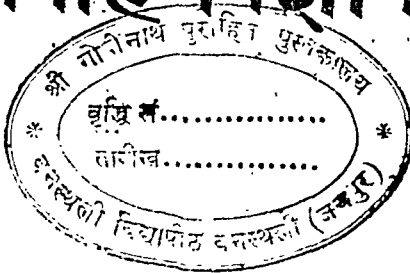 श्री गोपीनाथ पुरोहित पुस्तकालय
वृद्धि सं................
तारीख................
वनस्थली विद्यापीठ वनस्थली (जयपुर)